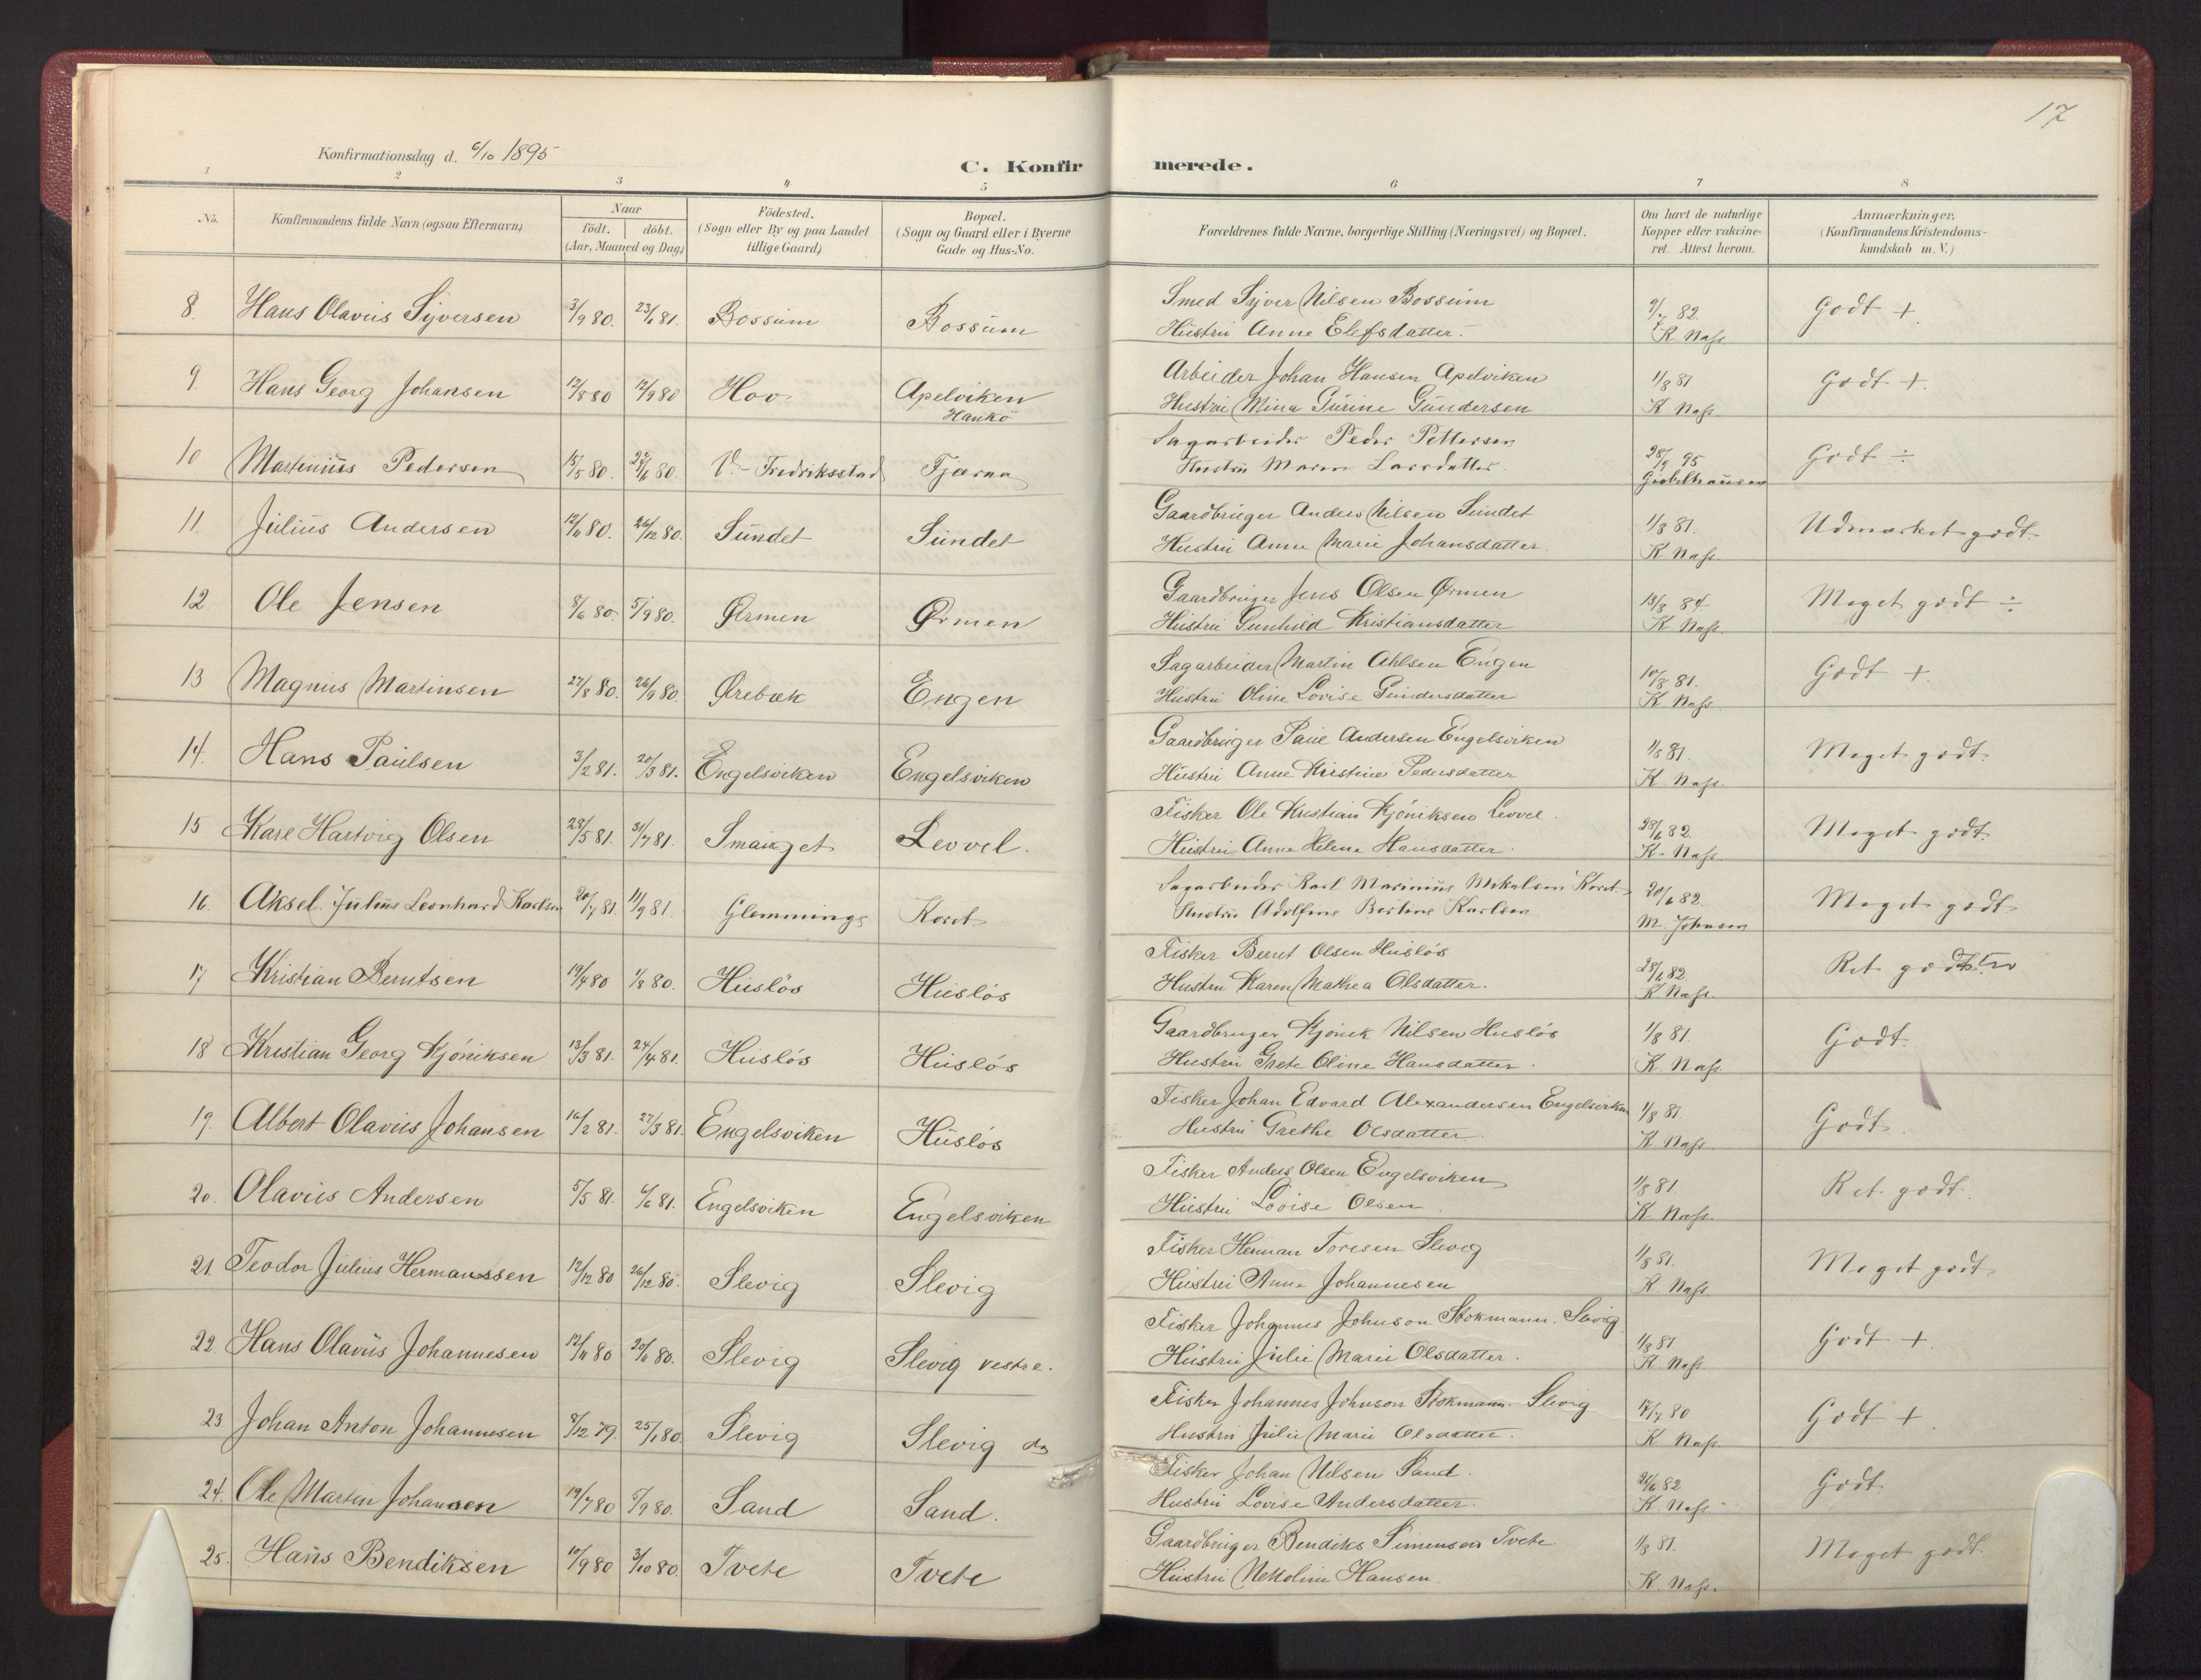 17
Konfirmationsdag d. 6/10 1895
C. Konfirmerede.
1 2 3 4 5 6 7 8
No. Konfirmandens fulde Navn (ogsaa Efternavn) Naar födt. döbt. (Aar, Maaned og Dag) Födested. (Sogn eller By og paa Landet tillige Gaard) Bopæl. (Sogn og Gaard eller i Byerne Gade og Hus-No. Forældrenes fulde Navne, borgerlige Stilling (Næringsvei) og Bopæl. Om havt de naturlige Kopper eller vakcineret. Attest herom. Anmærkninger. (Konfirmandens Kristendomskundskab m. V.)
8. Hans Olavius Syversen 3/9 80. 23/1 81. Bossum Bossum Smed Syver Nilsen Bossum 82 Godt +
Hustru Anne Elefsdatter. K. Nafs.
9. Hans Georg Johansen 12/8 80 12/9 80 Hov Apelviken Arbeider Johan Hansen Apelviken 1/8 81 Godt +.
Hankö Hustru Mina Gurine Gundersen K Nafs.
10 Martinius Pedersen 15/5 80. 27/6 80. V. Fredriksstad Fjærna Sagarbeider Peder Pettersen 28/9 95 Godt ÷
Hustru Maren Larsdatter.
11. Julius Andersen 12/11 80. 26/12 80. Sundet Sundet Gaardbruger Anders Nilsen Sundet 1/8 81. Udmærket godt.
Hustru Anne Marie Johansdatter. K Nafs.
12 Ole Jensen 8/6 80. 5/9 80. Ørmen Ørmen Gaardbruger Jens Olsen Ørmen 13/8 84 Meget godt ÷
Hustru Gunhild Kristiansdatter K Nafs.
13 Magnus Martinsen 27/8 80. 26/9 80 Ørebæk Engen Sagarbeider Martin Ahlsen Engen 10/8 81. Godt +
Hustru Oline Lovise Gundersdatter K Nafs.
14. Hans Paulsen 3/2 81. 20/3 81. Engelsviken Engelsviken Gaardbruger Paul Andersen Engelsviken 1/8 81. Meget godt.
Hustru Anne Kirstine Pedersdatter K Nafs.
15 Karl Hartvig Olsen 28/5 81. 31/7 81. Smauget Levvel. Fisker Ole Kristian Kjöniksen Levvel. 28/6 82. Meget godt.
Hustru Anne Helene Hansdatter. K. Nafs.
16. Aksel Julius Leonhard Karlsen 20/7 81. 11/9 81. Glemminge Korst Sagarbeider Karl Marinius Mikalsen Korst 20/6 82 Meget godt
Hustru Adolfine Bertine Karlsen M. Johnsen
17 Kristian Berntsen 19/4 80 1/8 80. Huslös Huslös Fisker Bernt Olsen Huslös 28/6 82 Ret godt.
Hustru Karen Mathea Olsdatter. K Nafs.
18 Kristian Georg Kjöniksen 13/3 81. 24/4 81. Huslös Huslös Gaardbruger Kjönik Nilsen Huslös 1/8 81. Godt.
Hustru Grete Oline Hansdatter. K Nafs.
19. Albert Olavius Johansen 16/2 81. 27/3 81. Engelsviken Huslös Fisker Johan Edvard Alexandersen Engelsviken 1/8 81. Godt.
Hustru Grethe Olsdatter K Nafs.
20. Olavius Andersen 5/5 81. 6/6 81. Engelsviken Engelsviken Fisker Anders Olsen Engelsviken 1/8 81. Ret godt.
Hustru Lovise Olsen. K Nafs.
21. Teodor Julius Hermanssen 12/12 80 26/12 80. Slevig Slevig Fisker Herman Toresen Slevig 1/8 81. Meget godt.
Hustru Anne Johannesen K. Nafs.
22 Hans Olavus Johannesen 12/11 80 20/11 80. Slevig Slevig vestre. Fisker Johannes Johnson Stokmann. Slevig 1/8 81 Godt +
Hustru Julie Marie Olsdatter. K. Nafs.
23 Johan Anton Johannesen 8/12 79. 25/1 80. Slevig Slevig do Fisker Johannes Johnson Stokmann. Slevig 17/7 80 Godt +
Hustru Julie Marie Olsdatter. K Nafs.
24. Ole Martin Johansen 19/7 80 5/9 80. Sand Sand. Fisker Johan Nilsen Sand. 21/6 82 Godt
Hustru Lovise Andersdatter. K Nafs.
25. Hans Bendiksen 10/9 80 3/10 80. Tvete Tvete Gaardbruger Bendiks Simensen Tvete 1/8 81. Meget godt.
Hustru Nettoline Hansen. K. Nafs.